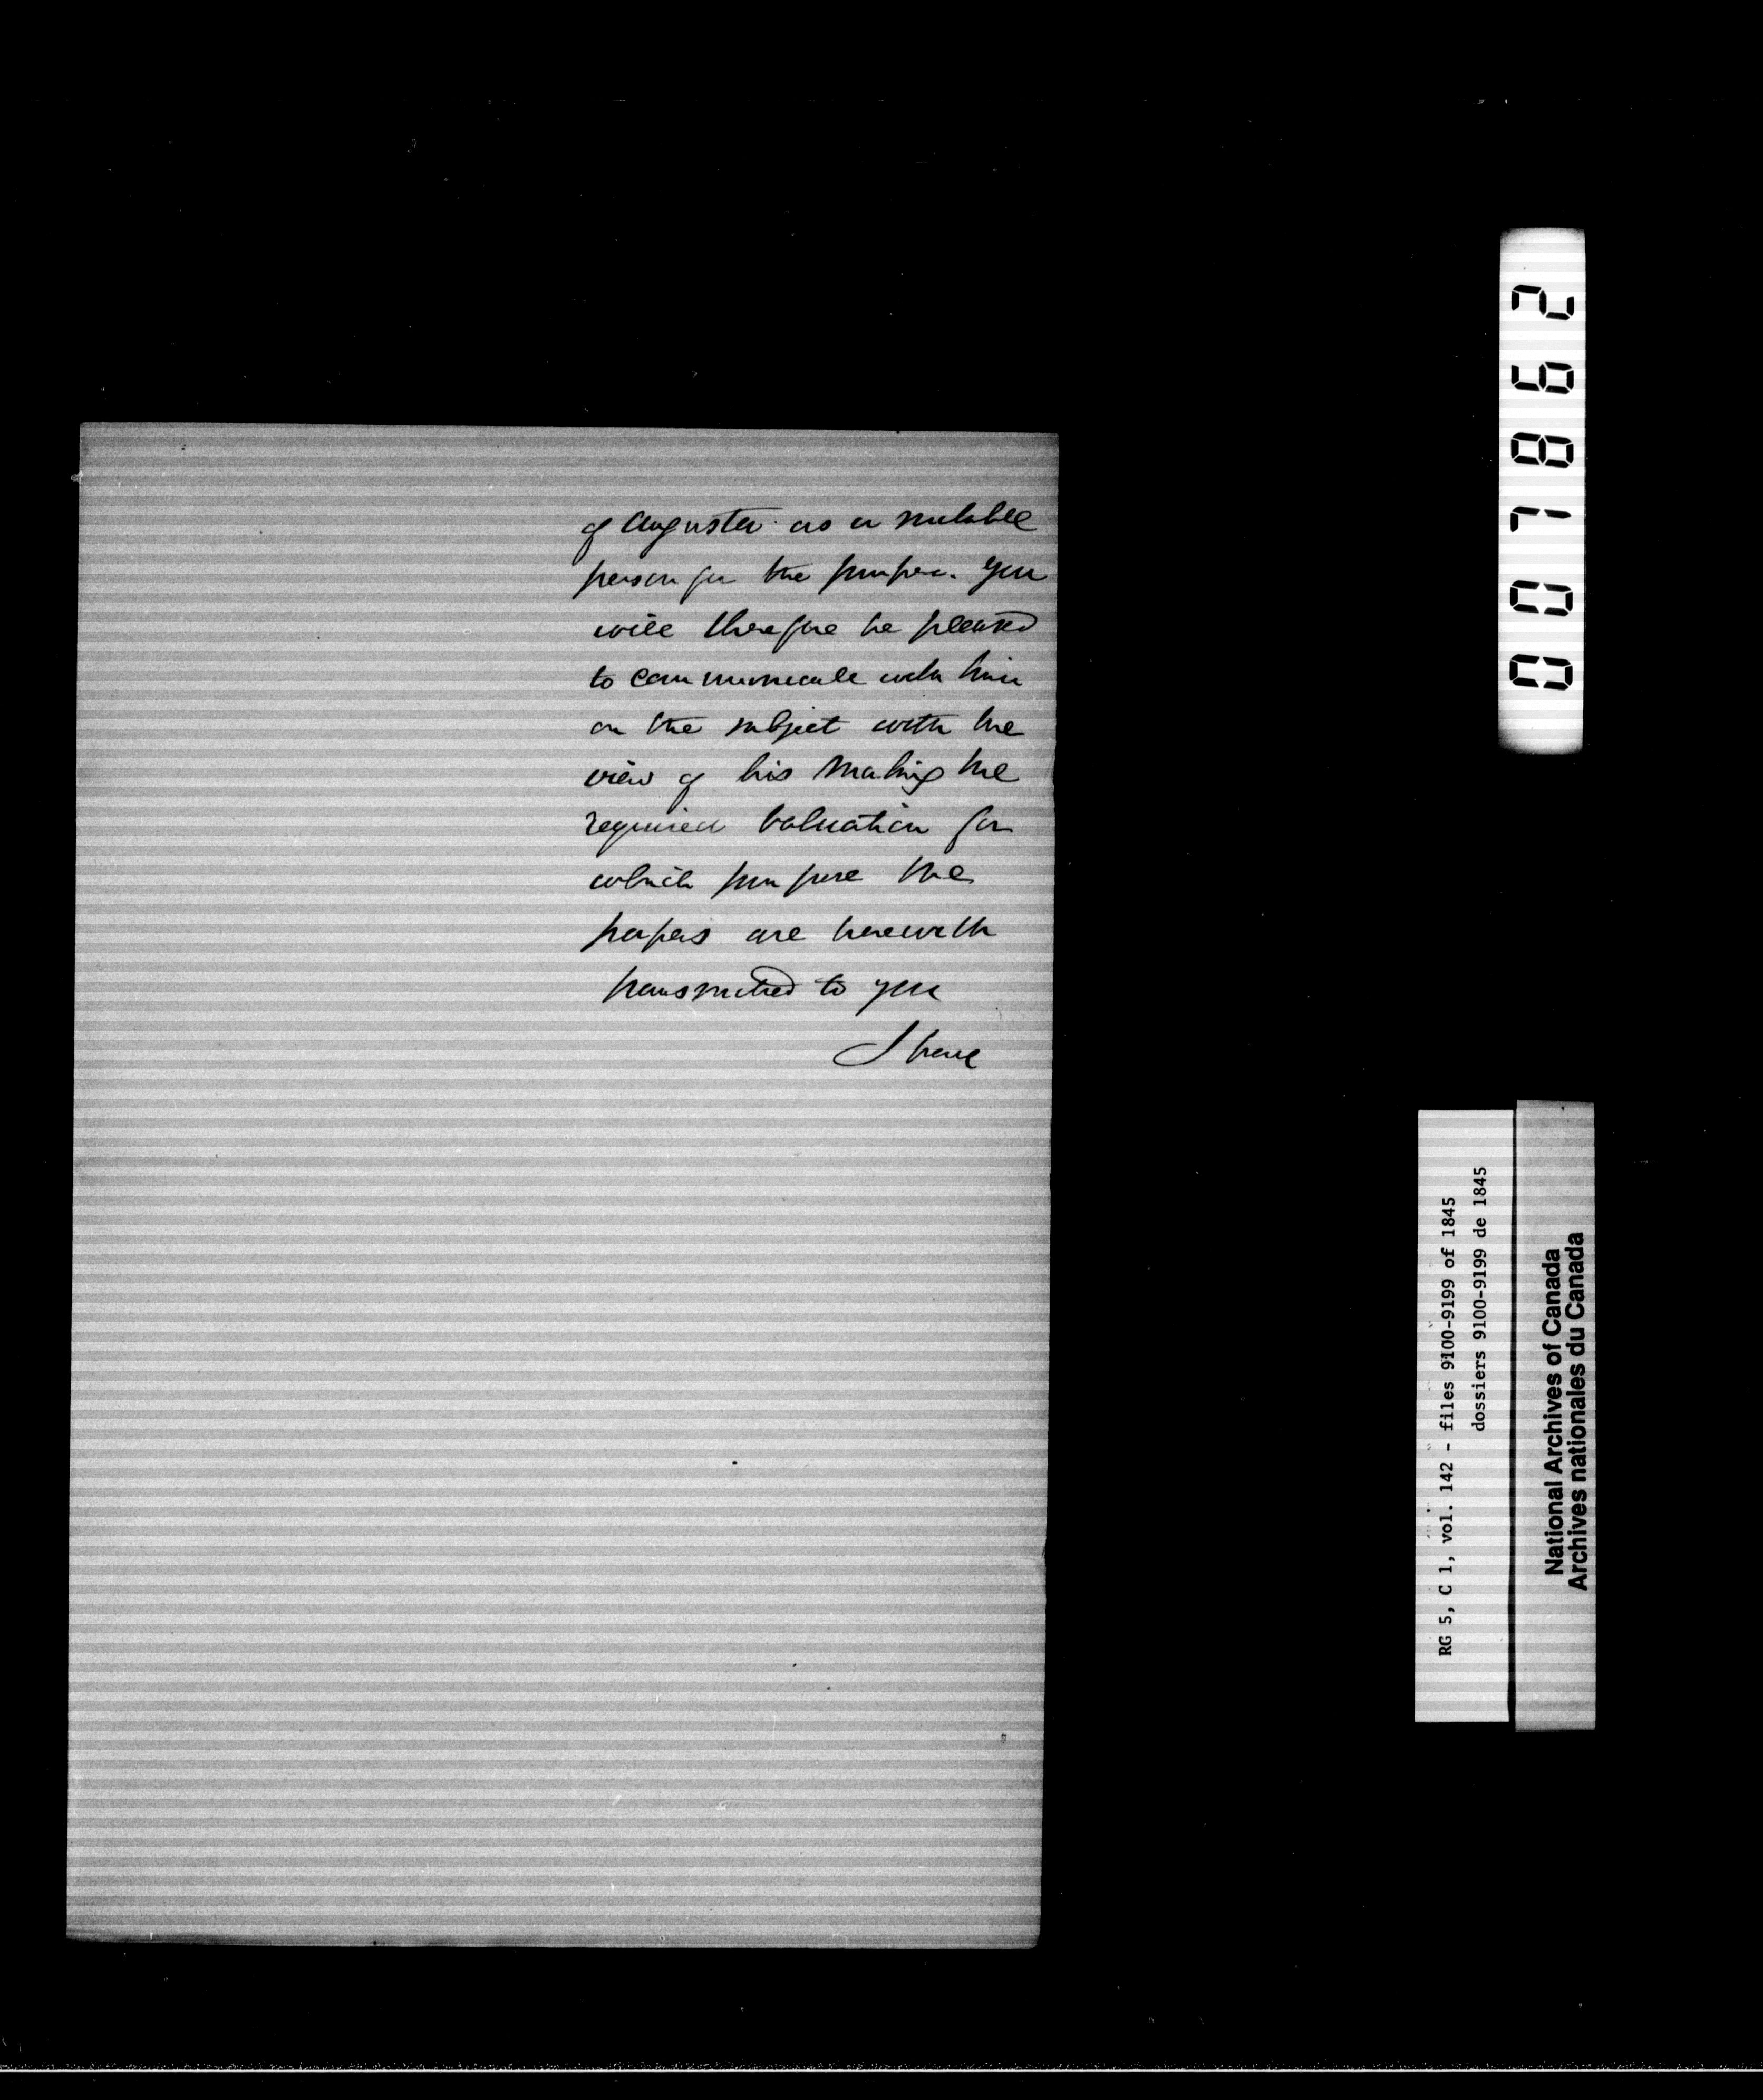 of Augusta as a suitable
person for the purpose. You
will therefore be pleased
to communicate with him
on the subject with the
view of his making the
required valuation for
which purpose the
papers are herewith
transmitted to you
I have
007862
RG 5, C 1, vol. 142 - files 9100-9199 of 1845
dossiers 9100-9199 de 1845
National Archives of Canada
Archives nationales du Canada